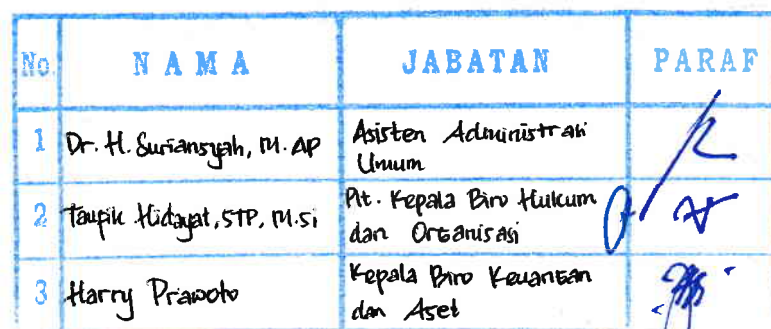 No. NAMA JABATAN PARAF
1 Dr. H. Suriansyah, M.AP Asisten Administrasi
Umum
2 Taupik Hidayat, STP, M.Si Plt. Kepala Biro Hukum
dan Organisasi
3 Harry Prawoto Kepala Biro Keuangan
dan Aset